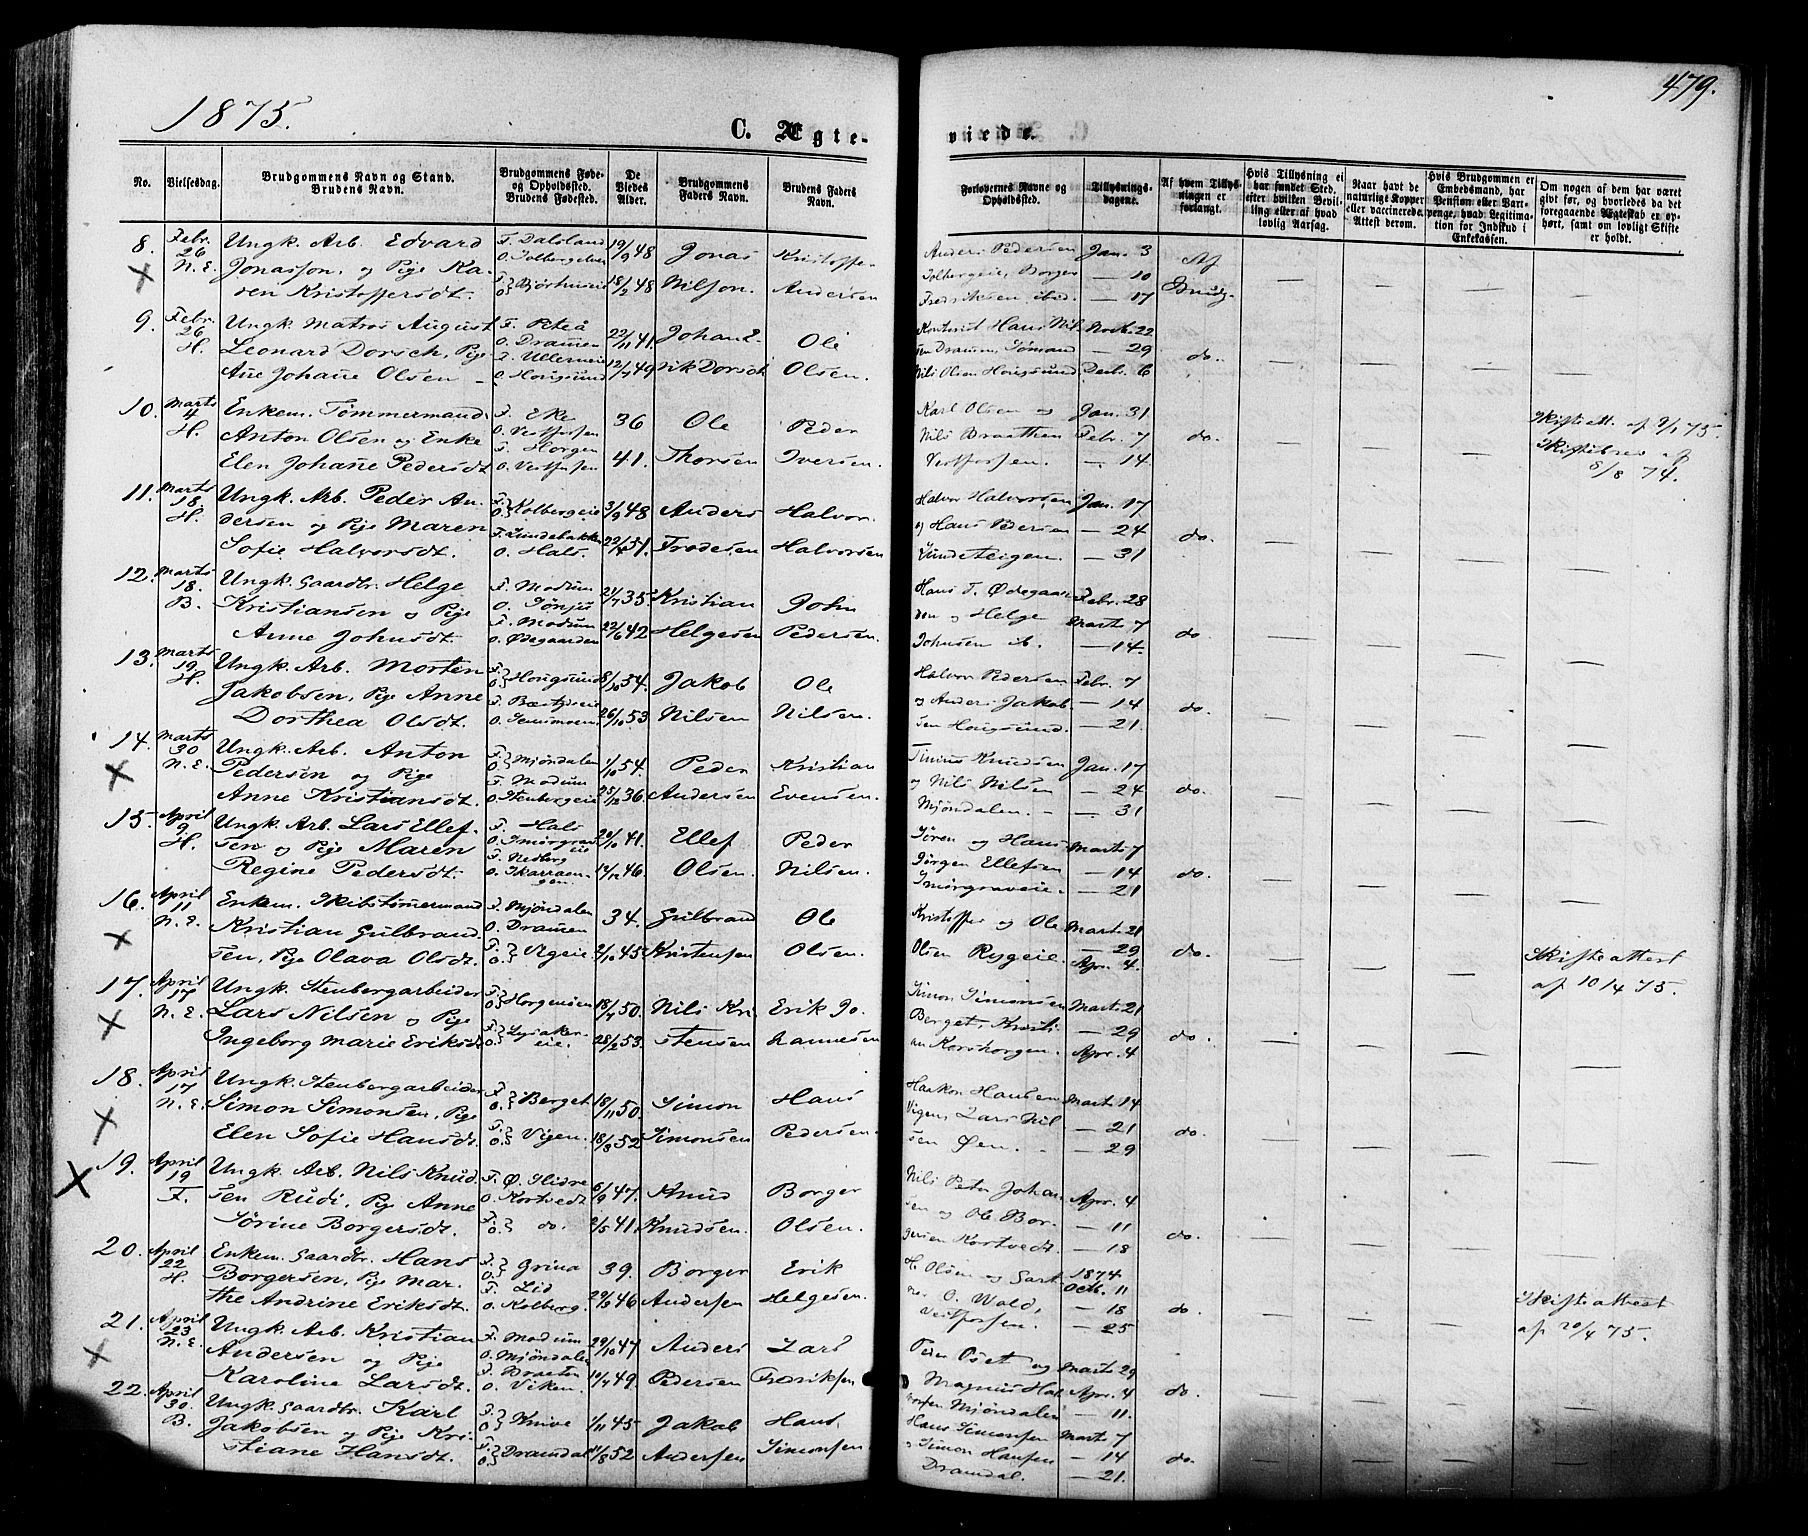 1875.
479.
C. Ægte-
viede.
No.
Vielsesdag.
Brudgommens Navn og Stand.
Brudens Navn.
Brudgommens Føde-
og Opholdssted.
Brudens Fødested.
De
Viedes
Alder.
Brudgommens
Faders Navn.
Brudens Faders
Navn.
Forlovernes Navne og
Opholdssted.
Tillysnings-
dagene.
Af hvem Tillys-
ningen er
forlangt.
Hvis Tillysning ei
har fundet Sted,
efter hvilken Bevil-
ling eller af hvad
lovlig Aarsag.
Naar havt de
naturlige Kopper
eller vaccinerede.
Attest derom.
Hvis Brudgommen er
Embedsmand, har
Pension eller Vart-
penge, hvad Legitima-
tion for Indskud i
Enkekassen.
Om nogen af dem har været
givt før, og hvorledes da det
foregaaende Ægteskab er op-
hørt, samt om lovligt Skifte
er holdt.
8. Febr. 26 N.E. Ungk. Arb. Edvard
Jonasson, og Pige Ka-
ren Kristoffersdt.
F. Dalsland
O. Solbergelven
19/9 48 Jonas Kristoffer
18/2 48 Nilson. Andersen
Anders Pedersen Jan. 3 Af
Solbergeie, Borger — 10 Brudg.
Fredriksen, ibid. — 17
9. Febr. 26 H. Ungk. Matros August
Leonard Dorsch, Pige
Ane Johane Olsen
F. Piteå
O. Dramen
F. Ullerneie
O. Hougsund
22/11 41 Johan E- Ole
12/7 49 rik Dorsch Olsen.
Kontorist Hans Nil- Novb. 22
sen Dramen, Sømand — 29 do.
Nils Olsen Hougsund. Decbr. 6
10. Marts 4 H. Enkem. Tømmermand
Anton Olsen og Enke
Elen Johane Pedersdt
F. Eke
O. Vestfossen
F. Horgen
O. Vestfossen
36 Ole Peder
41. Thorsen Iversen.
Karl Olsen og Jan. 31
Nils Braathen Febr. 7 do.
Vestfossen. — 14
Skifteatt. af 2/1 75.
Skiftebrev af
8/8 74.
11. Marts 18 H. Ungk. Arb. Peder An-
dersen og Pige Maren
Sofie Halvorsdt.
F. O. Kolbergeie
F. Lundebakken
O. Hals.
3/9 48 Anders Halvor
22/4 51. Frodesen Halvorsen
Halvor Halvorsen Jan. 17
og Hans Pedersen — 24 do.
Lundeteigen. — 31
12. Marts 18. B. Ungk. Gaardbr. Helge
Kristiansen og Pige
Anne Johnsdt.
F. Modum
F. Modum
O. Ødegaarden
21/7 35 Kristian John
22/6 42 Helgesen Pedersen.
Hans T. Ødegaar- Febr. 28
den og Helge Marts 7 do
Johnsen ib. — 14.
13. Marts 19 H. Ungk. Arb. Morten
Jakobsen, Pige Anne
Dorthea Olsdt.
F. O. Hougsund
8/10 54. Jakob Ole
26/10 53 Nilsen Nilsen.
Halvor Pedersen Febr. 7
og Anders Jakob — 14 do.
sen Hougsund. — 21.
14. Marts 30 N.E. Ungk. Arb. Anton
Pedersen og Pige
Anne Kristiansdt.
F. O. Mjøndalen
F. Modum
O. Stenbergeie
1/10 54. Peder Kristian
25/12 36 Andersen Evensen.
Timius Knudsen Jan. 17
og Nils Nilsen — 24 do.
Mjøndalen. — 31
15. April 9 H. Ungk. Arb. Lars Ellef-
sen og Pige Maren
Regine Pedersdt.
F. Hals
O. Smørgrav
eie
F. Nedberg
O. Skarraen-
gen.
20/10 41. Ellef Peder
14/12 46. Olsen. Nilsen.
Søren og Hans Marts 7
Jørgen Ellefsen — 14 do.
Smørgraveie. — 21
16. April 11 N.E. Enkem. Skibstømmermand
Kristian Gulbrand
sen, Pige Olava Olsdt.
F. Mjøndalen
O. Dramen
34. Gulbrand Ole
2/10 45 Kristensen Olsen.
Kristoffer og Ole Marts 21
Olsen Rygeie. — 29 do.
Apr. 4.
Skifteattest
af 10/4 75.
17. April 17 N.E. Ungk. Stenbergarbeider
Lars Nilsen og Pige
Ingeborg Marie Eriksdt
F. O. Horgeneien
F. O. Lysaker-
eie.
18/4 50. Nils Kri Erik Jo-
28/2 53. stensen hannesen
Simon Simonsen Marts 21
Berget, Kristi — 29 do.
an Korshorgen. Apr. 4
18. April 17 N.E. Ungk. Stenbergarbeider
Simon Simonsen, Pige
Elen Sofie Hansdt.
F. O. Berget
F. O. Vigen.
18/11 50. Simon Hans
18/8 52 Simonsen Pedersen
Haakon Hansen Marts 14
Vigen, Lars Nil — 21 do.
sen Øen. — 29
19. April 19 F. Ungk. Arb. Nils Knud
sen Rudi, Pige Anne
Sørine Borgersdt.
F. Ø. Slidre
O. Kortvedt
F. O. do.
6/9 47. Knud Borger
2/5 41. Knudsen. Olsen.
Nils Peter Johan Apr. 4
sen og Ole Bor- — 11
gersen Kortvedt. — 18 do.
20. April 22 H. Enkem. Gaardbr. Hans
Borgersen, Pige Mar-
the Andrine Eriksdt.
F. O. Grina
F. Lid
O. Kolberg.
39. Borger Erik
29/3 46 Andersen Helgesen.
H. Olsen og Gart- 1874 Octb. 11
ner O. Wold, — 18 do
Vestfossen. — 25
Skifteattest
af 20/4 75.
21. April 23 N.E. Ungk. Arb. Kristian
Andersen og Pige
Karoline Larsdt.
F. Modum
O. Mjøndalen
F. Braaten
O. Viken.
29/10 47. Anders Lars
10/4 49. Pedersen Fredriksen
Peder Oset og Marts 29
Magnus Hal Apr. 4 do
vorsen Mjøndalen — 11.
22. April 30. B. Ungk. Gaardbr. Karl
Jakobsen og Pige Kri-
stiane Hansdt.
F. O. Knive
F. O. Dramdal
1/11 45 Jakob Hans
11/8 52 Andersen Simonsen
Hans Simonsen Marts 7
og Simon Hansen — 14 do.
Dramdal. — 21.